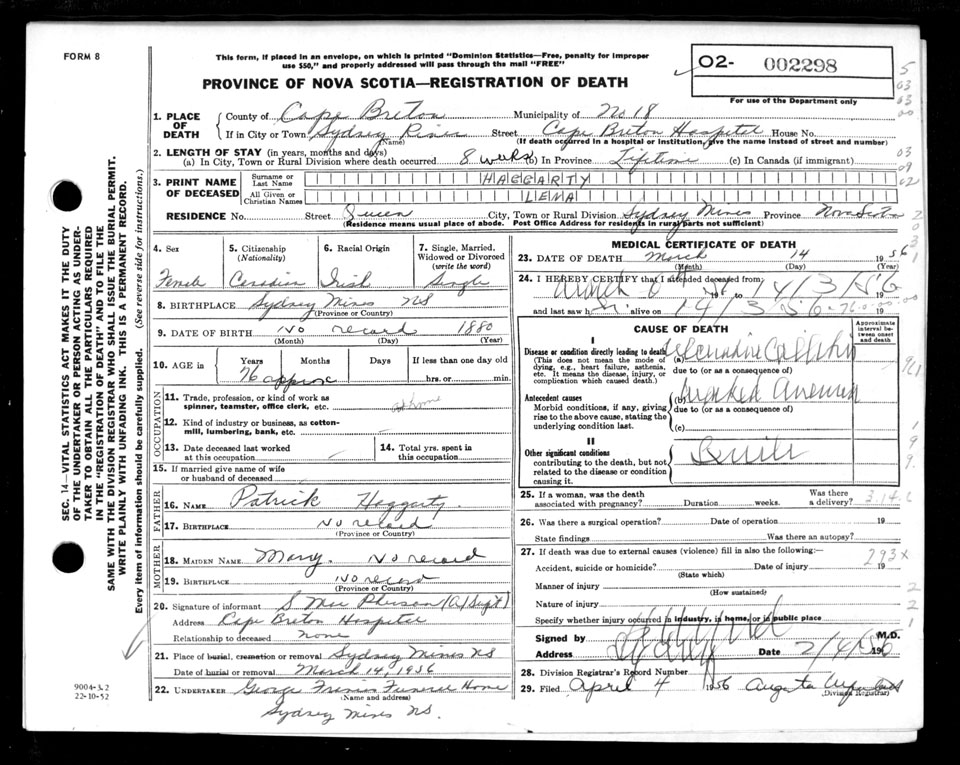 FORM 8
This form, if placed in an envelope, on which is printed "Dominion Statistics—Free, penalty for improper
use $50," and properly addressed will pass through the mail "FREE"
PROVINCE OF NOVA SCOTIA—REGISTRATION OF DEATH
02- 002298
For use of the Department only
1. PLACE OF DEATH
County of Cape Breton Municipality of No 18
If in City or Town Sydney River Street Cape Breton Hospital House No.
(Name) (If death occurred in a hospital or institution, give the name instead of street and number)
2. LENGTH OF STAY (in years, months and days)
(a) In City, Town or Rural Division where death occurred 8 weeks (b) In Province Lifetime (c) In Canada (if immigrant)
3. PRINT NAME OF DECEASED
Surname or Last Name HAGGARTY
All Given or Christian Names LENA
RESIDENCE No. Street Queen City, Town or Rural Division Sydney Mines Province Nova Scotia
(Residence means usual place of abode. Post Office Address for residents in rural parts not sufficient)
4. Sex Female
5. Citizenship (Nationality) Canadian
6. Racial Origin Irish
7. Single, Married, Widowed or Divorced (write the word) Single
8. BIRTHPLACE Sydney Mines NS
(Province or Country)
9. DATE OF BIRTH No record 1880
(Month) (Day) (Year)
10. AGE in Years Months Days If less than one day old
76 approx hrs. or min.
OCCUPATION
11. Trade, profession, or kind of work as spinner, teamster, office clerk, etc. at home
12. Kind of industry or business, as cotton-mill, lumbering, bank, etc.
13. Date deceased last worked at this occupation
14. Total yrs. spent in this occupation
15. If married give name of wife or husband of deceased
FATHER
16. NAME Patrick Haggarty
17. BIRTHPLACE No record
(Province or Country)
MOTHER
18. MAIDEN NAME Mary. No record
19. BIRTHPLACE No record
(Province or Country)
20. Signature of informant S Mac Pherson (A/Supt)
Address Cape Breton Hospital
Relationship to deceased none
21. Place of burial, cremation or removal Sydney Mines NS
Date of burial or removal March 14, 1956
22. UNDERTAKER George Francis Funeral Home
(Name and address)
Sydney Mines NS.
MEDICAL CERTIFICATE OF DEATH
23. DATE OF DEATH March 14 1956
(Month) (Day) (Year)
24. I HEREBY CERTIFY that I attended deceased from:
to 14/3/56 19
and last saw h alive on 14/3/56
CAUSE OF DEATH
Approximate interval between onset and death
I
Disease or condition directly leading to death (a)
(This does not mean the mode of dying, e.g., heart failure, asthenia, etc. It means the disease, injury, or complication which caused death.)
due to (or as a consequence of)
Antecedent causes (b) marked anemia
Morbid conditions, if any, giving rise to the above cause, stating the underlying condition last.
due to (or as a consequence of)
(c)
II
Other significant conditions
contributing to the death, but not related to the disease or condition causing it.
Senile
25. If a woman, was the death associated with pregnancy? Duration weeks. Was there a delivery?
26. Was there a surgical operation? Date of operation 19
State findings Was there an autopsy?
27. If death was due to external causes (violence) fill in also the following:—
Accident, suicide or homicide? Date of injury 19
(State which)
Manner of injury
(How sustained)
Nature of injury
Specify whether injury occurred in industry, in home, or in public place
Signed by M.D.
Address Date 2/4/56 195
28. Division Registrar's Record Number
29. Filed April 4 1956 Augusta
(Division Registrar)
9004-3.2
22-10-52
SEC. 14—VITAL STATISTICS ACT MAKES IT THE DUTY
OF THE UNDERTAKER OR PERSON ACTING AS UNDER-
TAKER TO OBTAIN ALL THE PARTICULARS REQUIRED
IN THE "REGISTRATION OF DEATH" AND TO FILE THE
SAME WITH THE DIVISION REGISTRAR WHO SHALL ISSUE THE BURIAL PERMIT.
WRITE PLAINLY WITH UNFADING INK. THIS IS A PERMANENT RECORD.
Every item of information should be carefully supplied. (See reverse side for instructions.)